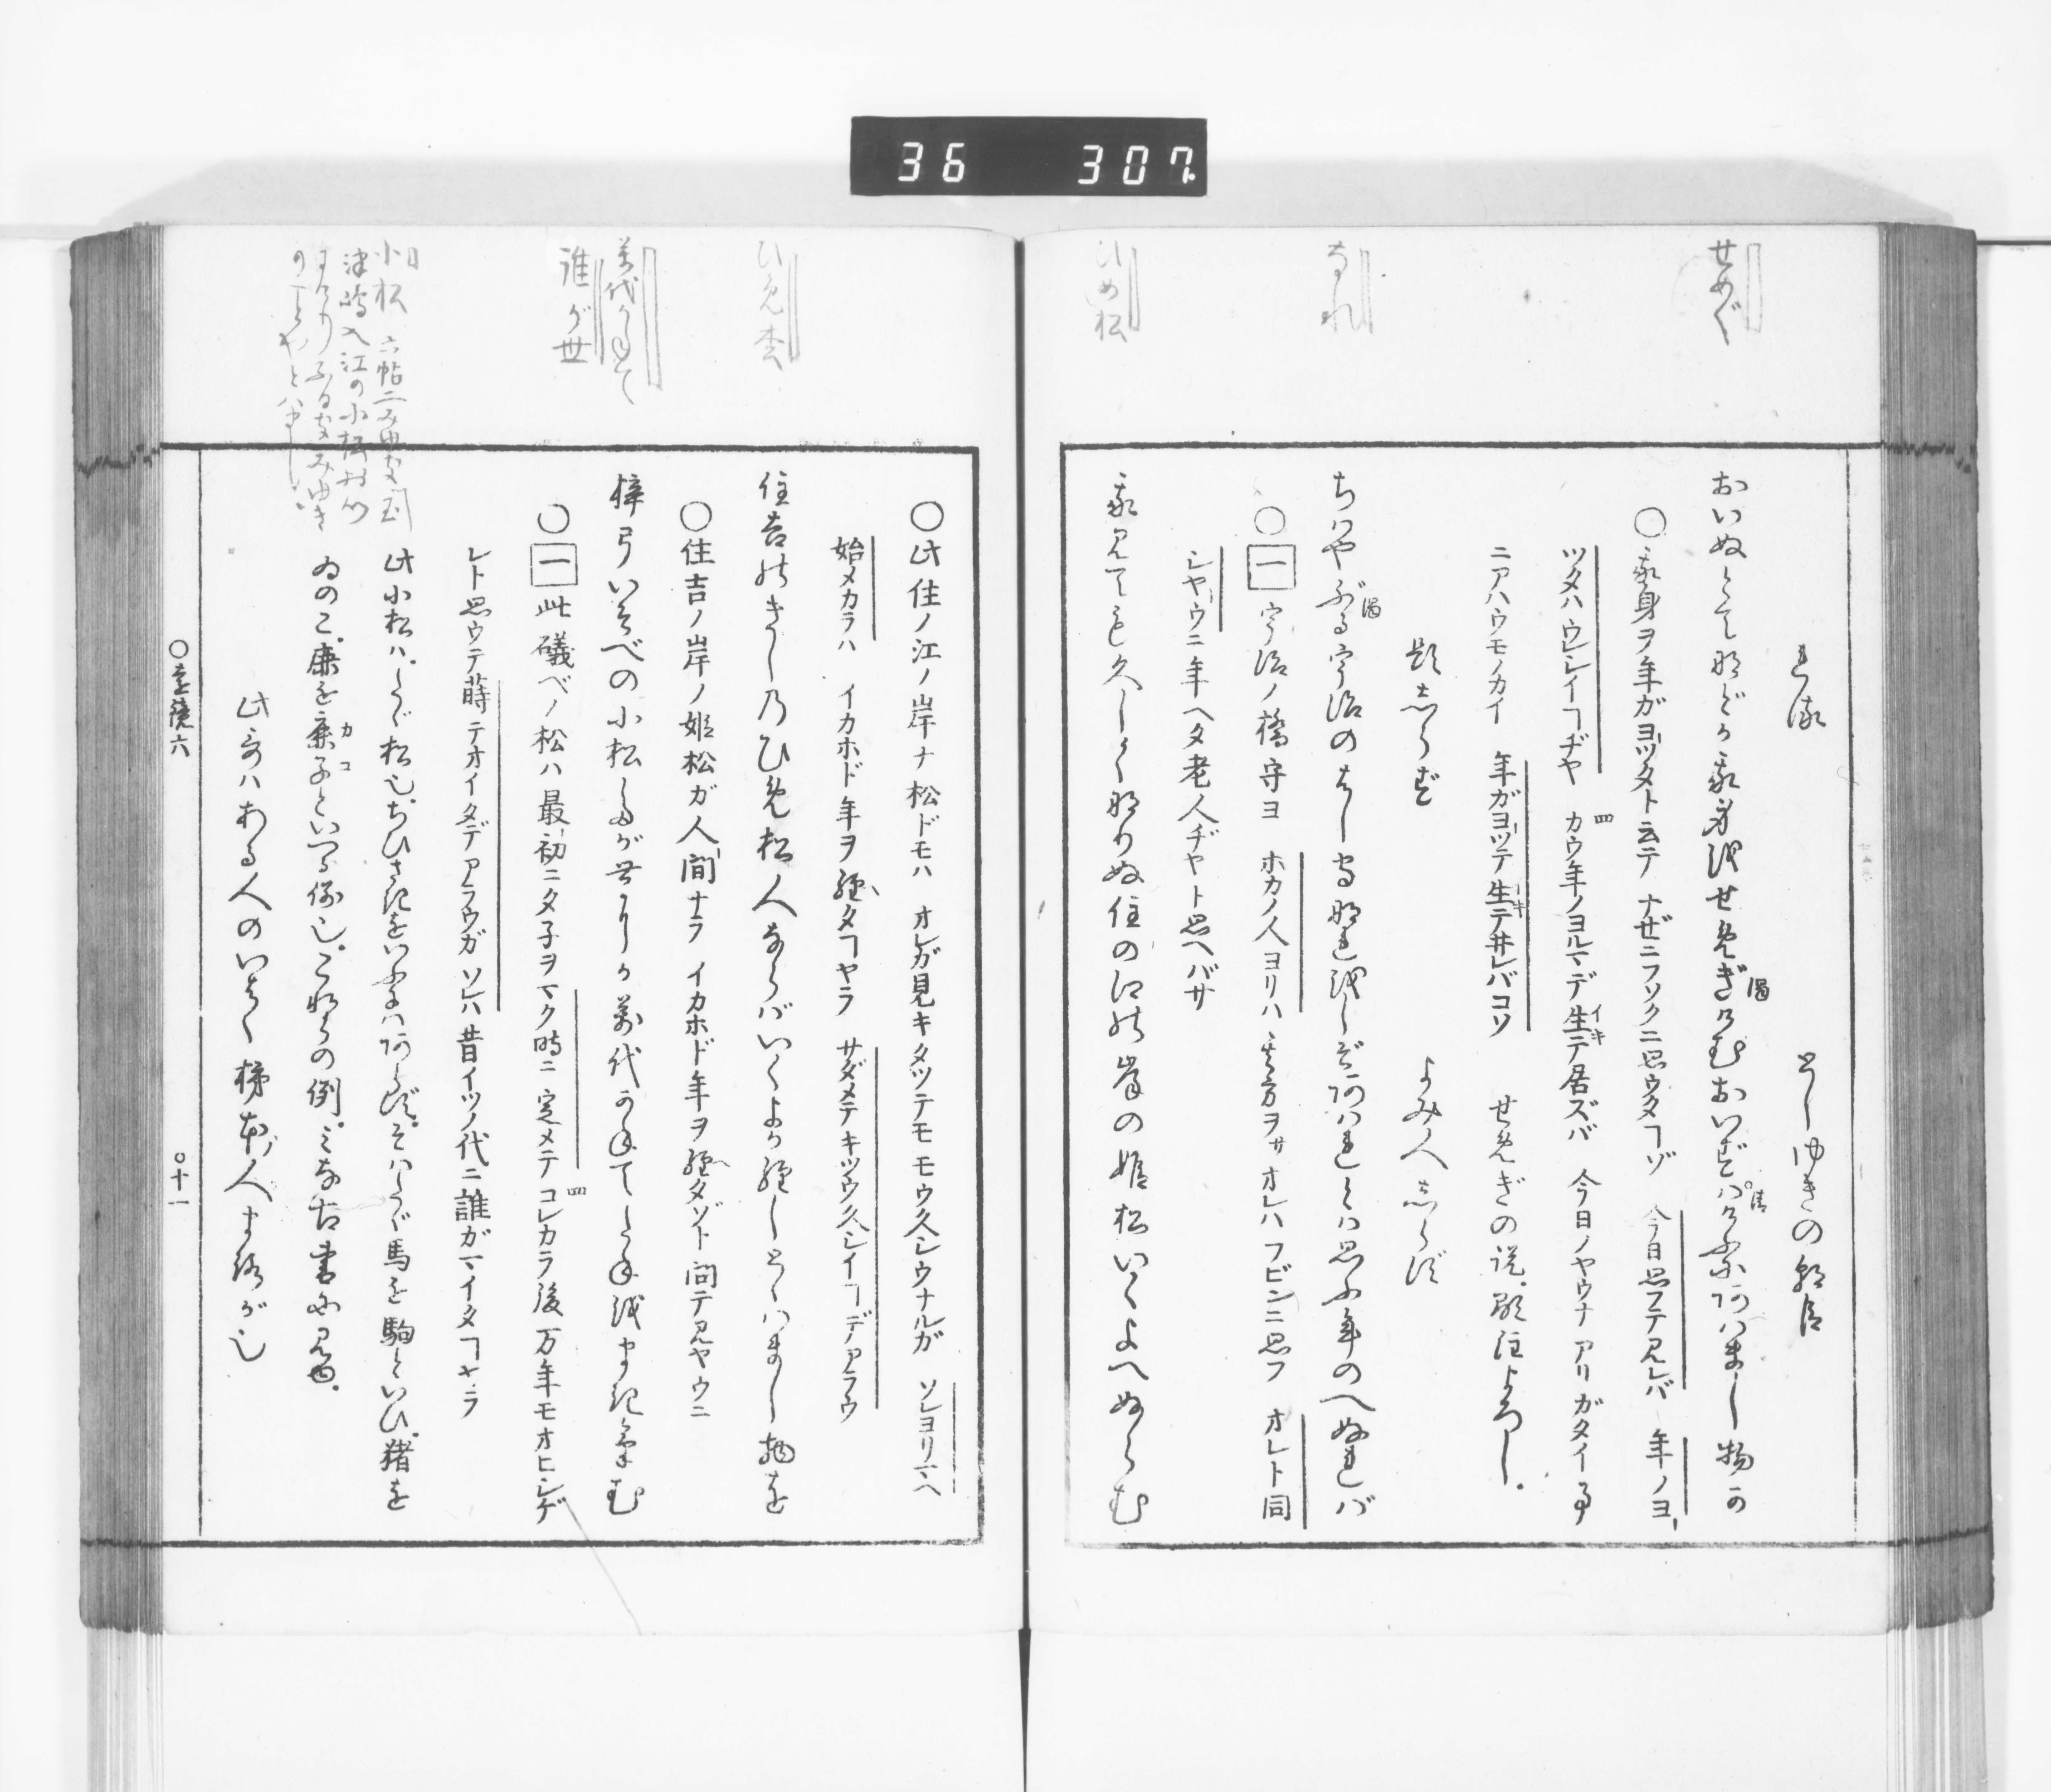 36 307
せめぐ
なれ
ひめ松
れ深
としゆきの朝臣
おいぬとて などか我身をせめぎけむおいずハけふにあはまし物か
○我身ヲ年ガヨツタト云テ ナゼニフソクニ思ウタヿゾ 今日思フテ見レバ 年ノヨ
ツタハウレシイヿヂヤ カウ年ノヨルマデ生テ居ズバ 今日ノヤウナ アリガタイ事
ニアハウモノカイ 年ガヨツテ生テ井レバコソ せめぎの説、顕注よろし。
題しらず
よみ人しらず
ちはやぶる宇治のはし守なれをしぞあはれとは思ふ年のへぬれば
○一宇治ノ橋守ヨ ホカノ人ヨリハ 其方ヲサ オレハフビンニ思フ オレト同
シヤウニ年ヘタ老人ヂヤト思ヘバサ
我見ても久しくなりぬ住の江の岸の姫松いくよへぬらむ
ひめ松
万代かねて
誰が世
小松 六帖ニ
津嶋入江の小松
○此住ノ江ノ岸ナ松ドモハ オレガ見キタツテモ モウ久シウナルガ ソレヨリマヘ
始メカラハ イカホド年ヲ經タヿヤラ サダメテキツウ久シイヿデアラウ
住吉のきしのひめ松人ならばいくよか經しととはまし物を
○住吉ノ岸ノ姫松ガ人間ナラ イカホド年ヲ經タゾト問テ見ヤウニ
梓弓いそべの小松たが世にか万代かねてたねをまきけむ
○一此礒ベノ松ハ最初ニタ子ヲマク時ニ定メテ コレカラ後万年モオヒシゲ
レト思ウテ蒔テオイタデアラウガ ソレハ昔イツノ代ニ誰ガマイタヿヤラ
此小松ハ、たゞ松也、ちひさきをいふにはあらず。そはたゞ馬を駒といひ、猪を
ゐのこ、鹿を鹿子といへる例也。
此哥ハある人のいはく 柿本人まろが也
○遠鏡六
○十一